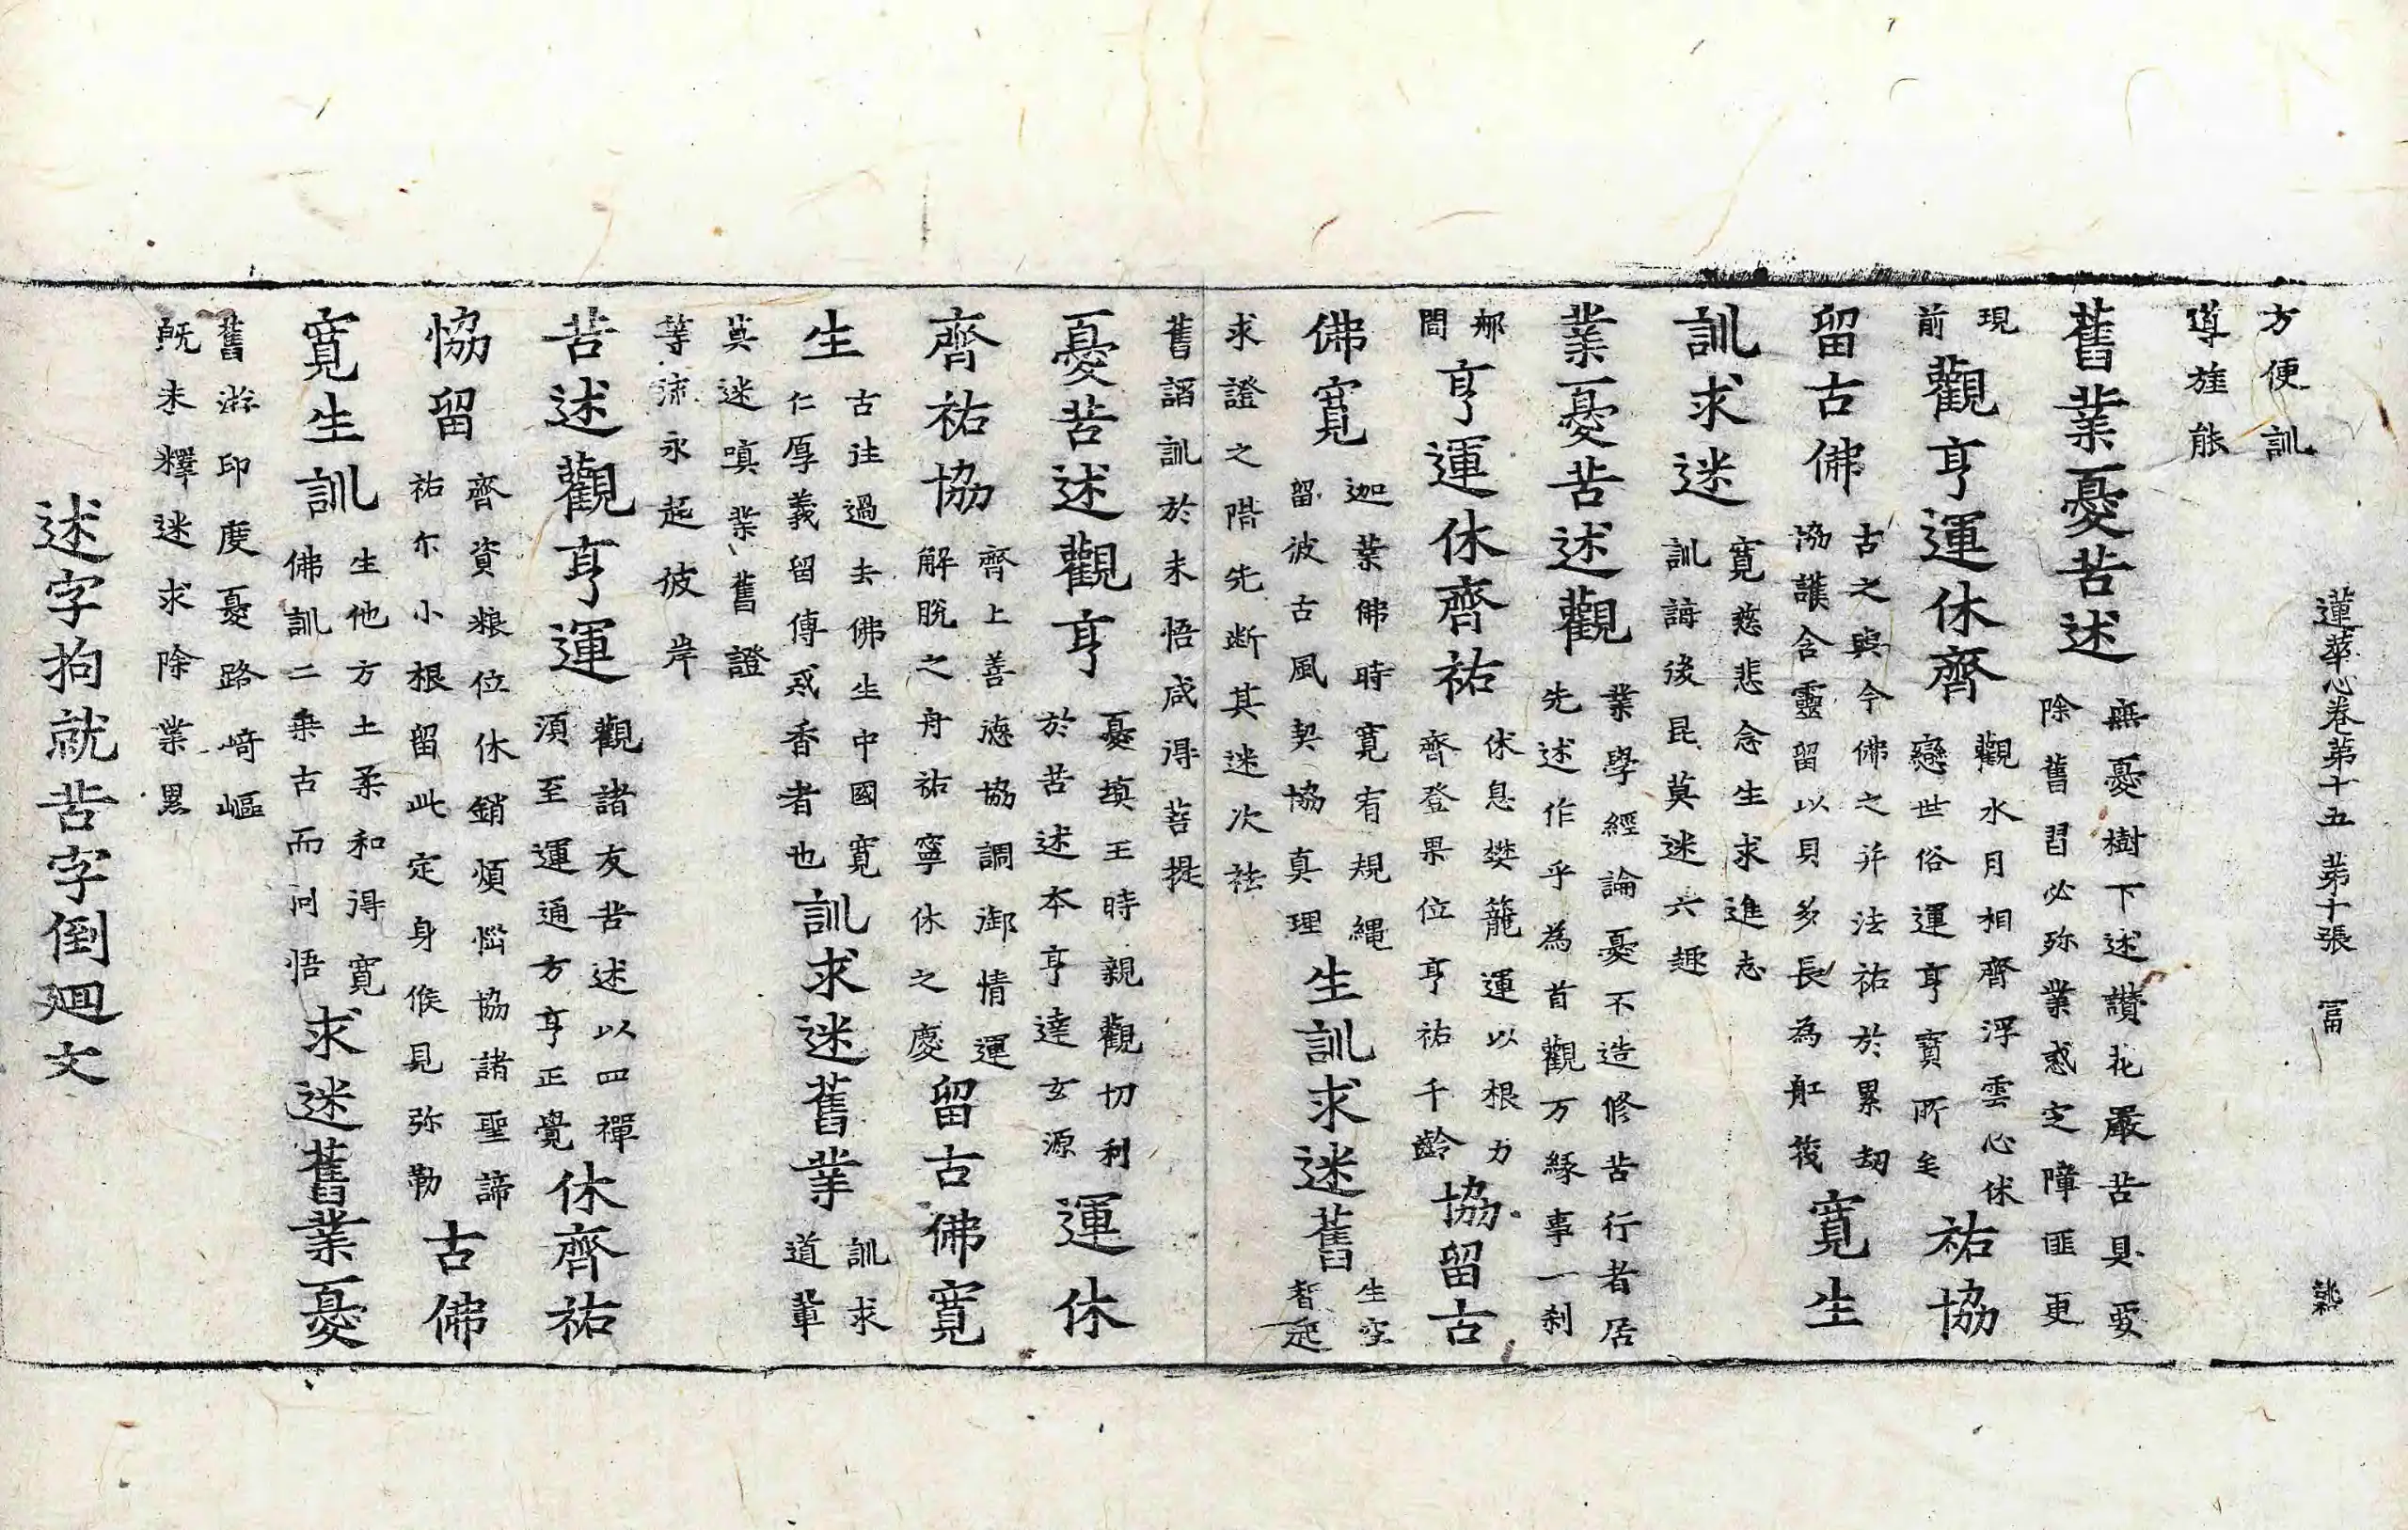 蓮華心卷第十五 第十張 冨
方便訓
導旌能
舊業憂苦述 無憂樹下述讚花嚴苦具要 除舊習必弥業惑之障匪更
現前 觀亨運休齊 觀水月相齊浮雲心休 戀世俗運亨寶所矣 祐協
留古佛 古之與今佛之并法祐於累劫 協護含靈留以貝多長為舡筏 寛生
訓求迷 寛慈悲念生求進志 訓誨後昆莫迷六趣
業憂苦述觀 業學經論憂不造修苦行者居 先述作乎為首觀万緣事一刹
那間 亨運休齊祐 休息樊籠運以根力 齊登果位亨祐千齡 協留古
佛寛 迦葉佛時寛宥規繩 留彼古風契協真理 生訓求迷舊 生空 智起
求證之階先断其迷次祛
舊謟訓於未悟咸得菩提
憂苦述觀亨 憂填王時親觀切利 於苦述本亨達玄源 運休
齊祐協 齊上善德協調御情運 解脫之舟祐寧休之慶 留古佛寛
生 古往過去佛生中國寛 仁厚義留傳戒香者也 訓求迷舊業 訓求 道輩
莫迷嗔業舊證
等流永起彼岸
苦述觀亨運 觀諸友苦述以四禪 湏至運通方亨正覺 休齊祐
恊留 齊資粮位休銷煩惱協諸聖諦 祐尓小根留此定身候見弥勒 古佛
寛生訓 生他方土柔和得寛 佛訓二乗古而问悟 求迷舊業憂
舊游印度憂路崎嶇
旣未釋迷求除業累
述字拘就苦字倒廻文